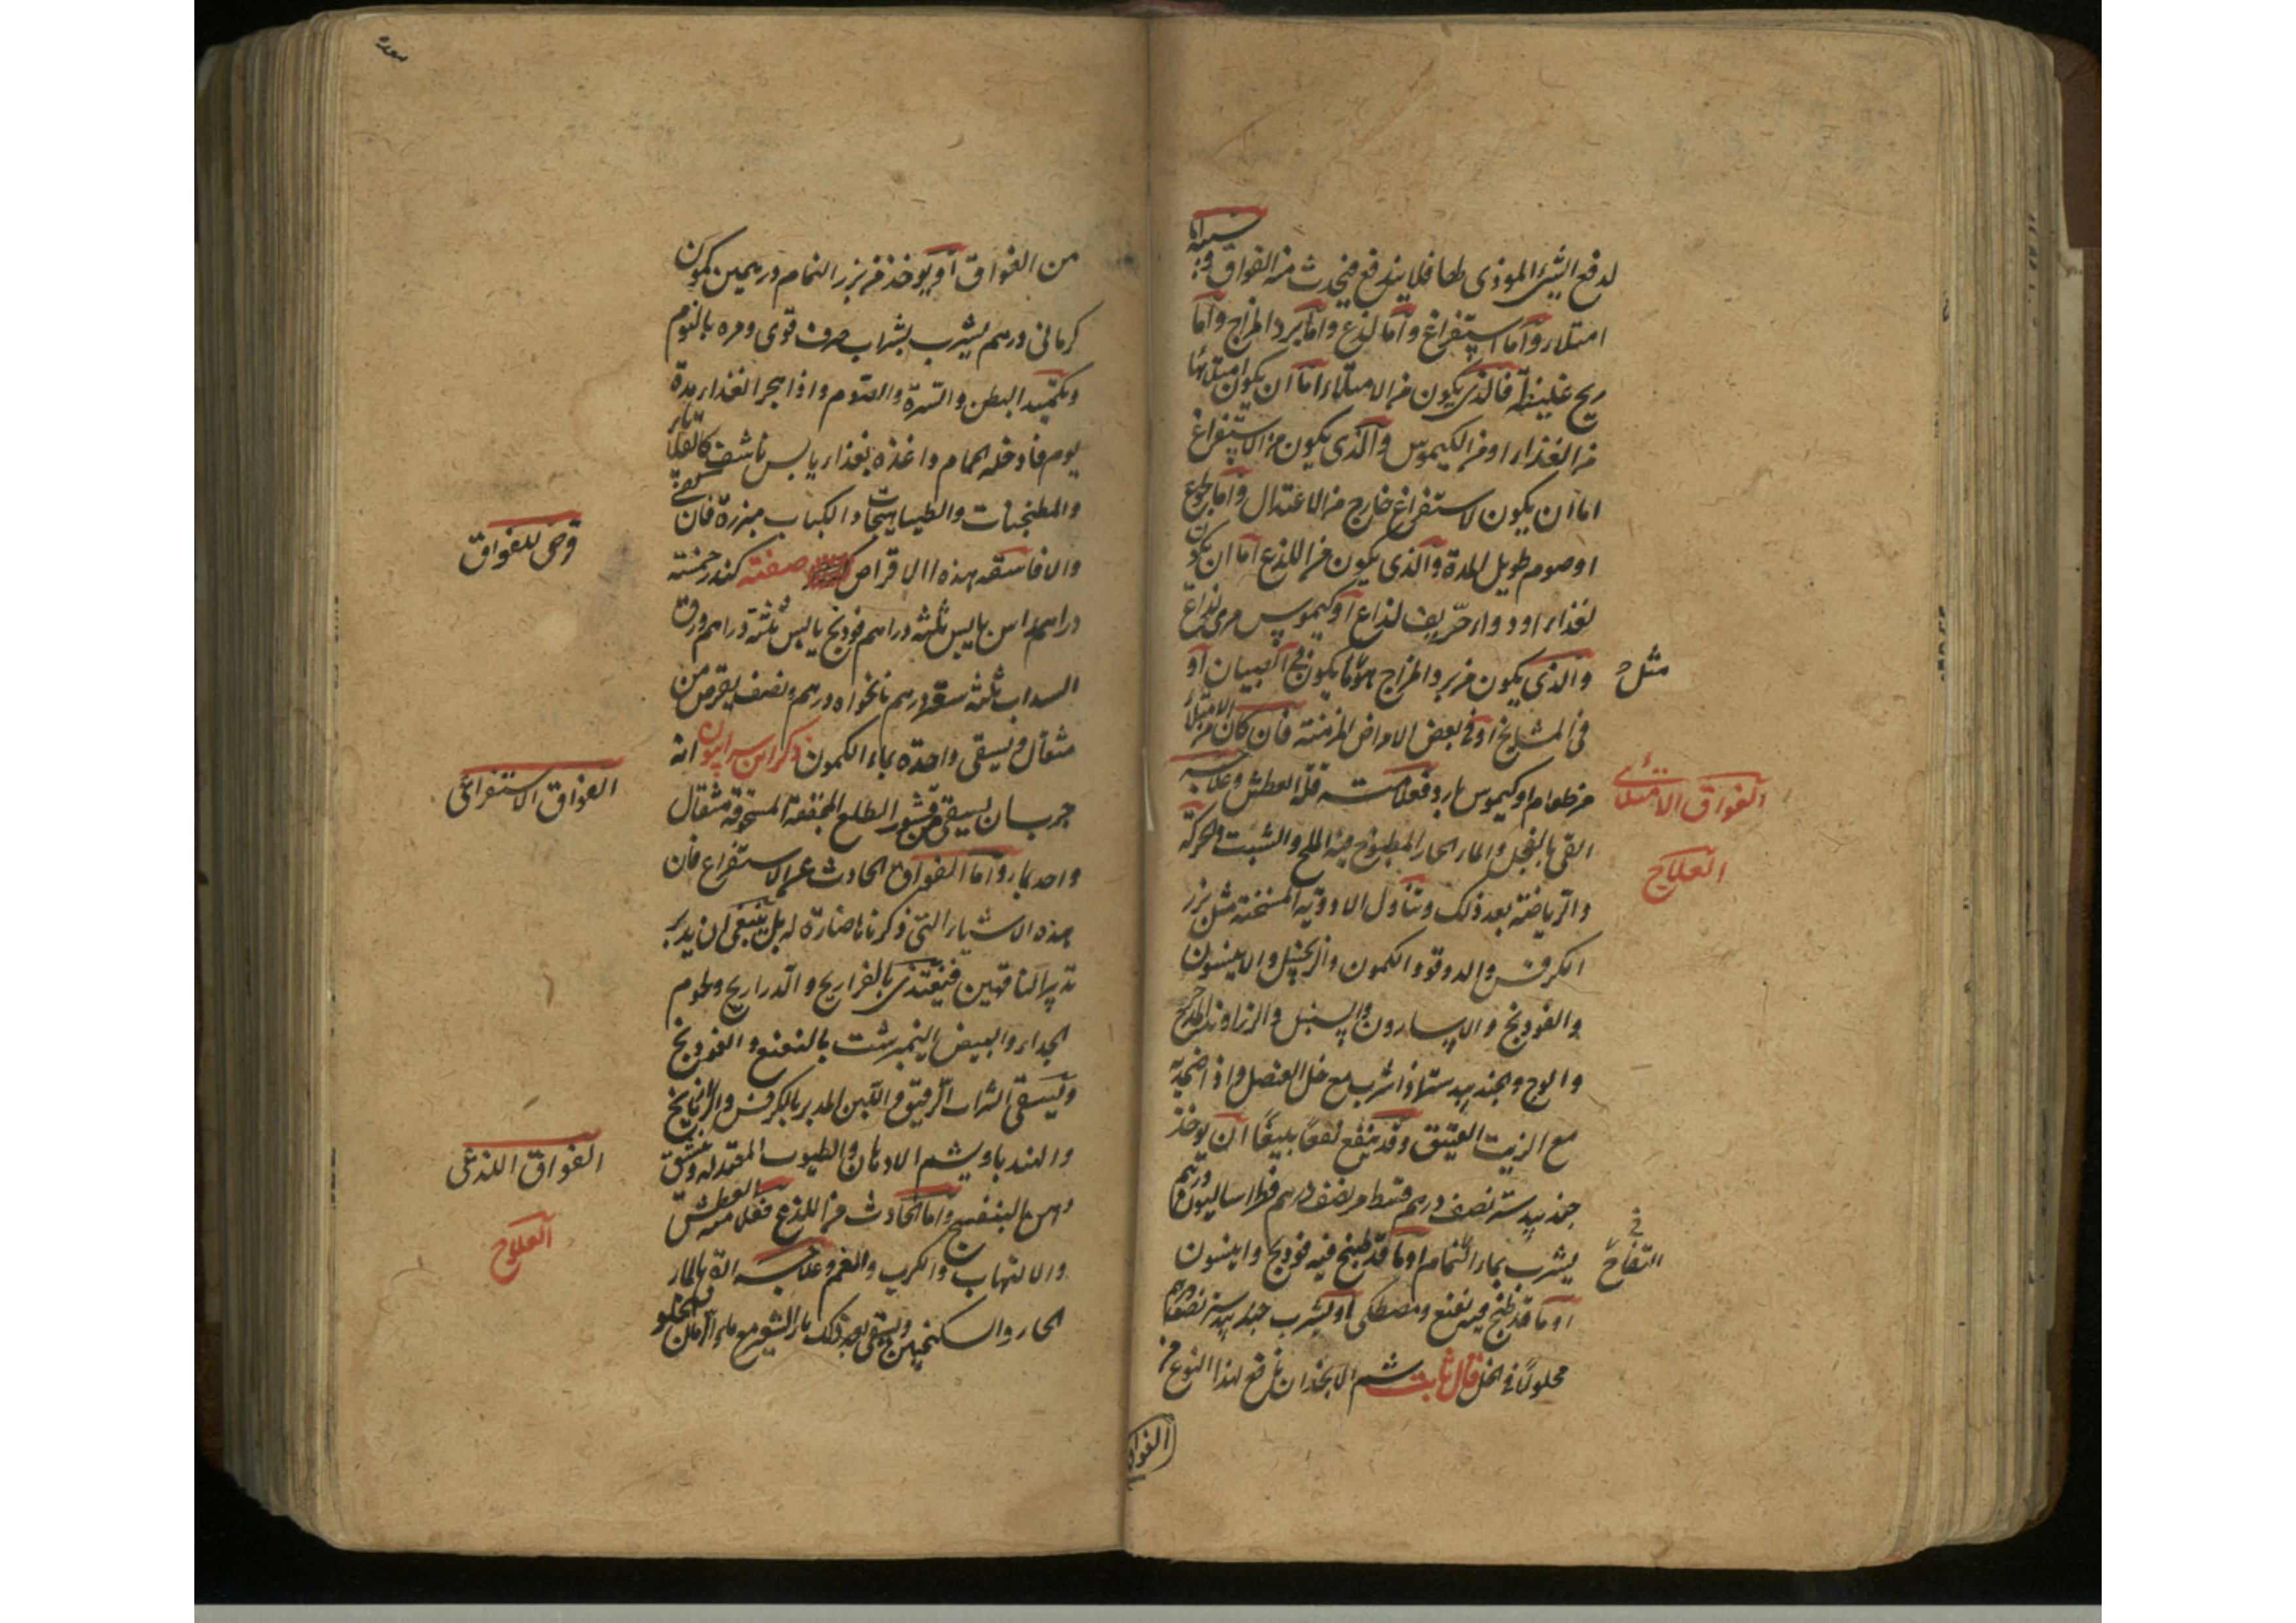 لدفع الشئ الموذى لها فلا يندفع فيحدث منه الفواق وسببه اما
امتلاء واما استفراغ واما لذع واما برد المزاج واما
ريح غليظة فالذى يكون من الامتلاء اما ان يكون امتلائها
من الغذاء او من الكيموس والذى يكون من الاستفراغ
اما ان يكون لاستفراغ خارج من الاعتدال واما بجوع
او صوم طويل المدة والذى يكون من اللذع اما ان يكون
لغذاء او دواء حريف لذاع او كيموس مرى لذاع
والذى يكون من برد المزاج مثل ما يكون فى الصبيان او
فى المشايخ او فى بعض الامراض المزمنة فان كان من الامتلاء
من طعام او كيموس بارد فعلامته قلة العطش وعلاجه
القى بالفجل والماء الحار المطبوخ فيه الملح والشبت والحركة
والرياضة بعد ذلك وتناول الادوية المسخنة مثل بزر
الكرفس والدوقو والكمون والزنجبيل والانيسون
والفودنج والاسارون والسنبل والزراوند المدحرج
والوج والجندبيدستر اذا شرب مع خل العنصل واذا ضمد به
مع الزيت العتيق وقد ينفع نفعا بليغا ان يوخذ
جندبيدستر نصف درهم قسط مر نصف درهم فطراساليون درهم
يشرب بماء النمام او ما قد طبخ فيه فودنج وانيسون
او ما قد طبخ فيه نعنع ومصطكى او يشرب جندبيدستر نصف درهم
محلولا فى الخل قال ثابت شم الانجذان نافع لهذا النوع من
مثل
الفواق الامتلائى
العلاج
الفواق
من الفواق او يوخذ من بزر النمام درهمين كمون
كرمانى درهم يشرب بشراب صرف قوى ومره بالنوم
وتكميد البطن والسرة والصوم واذا هجر الغذاء مدة
يوم فادخله الحمام واغذه بغذاء يابس ناشف كالقلايا
والمطجنات والطباهجات والكباب مبزرة فان
والا فاسقه بهذه الاقراص صفته كندر خمسة
دراهم ... يابس ثلثة دراهم فودنج يابس ثلثة دراهم ورق
السداب ثلثة دراهم نانخواه درهم ونصف يقرص من
مثقال ويسقى واحدة بماء الكمون ذكر ابن سرابيون انه
جرب ان يسقى من قشور الطلع المجففة المسحوقة مثقال
واحد بماء واما الفواق الحادث عن الاستفراغ فان
هذه الاشياء التى ذكرناها ضارة له بل ينبغى ان يدبر
تدبير الناقهين فيغتذى بالفراريج والدراريج ولحوم
الجداء والبيض النيمبرشت بالنعنع والفودنج
ويسقى الشراب الرقيق واللبن المدبر بالكرفس والرازيانج
والهندبا ويشم الادهان والطيوب المعتدلة
دهن البنفسج واما الحادث من اللذع فعلامته العطش
والالتهاب والكرب والغم وعلاجه القئ بالماء
الحار والسكنجبين ويسقى بعد ذلك ماء الشعير مع ماء الرمان الحلو
قرص للفواق
الفواق الاستفراغى
الفواق اللذعى
العلاج